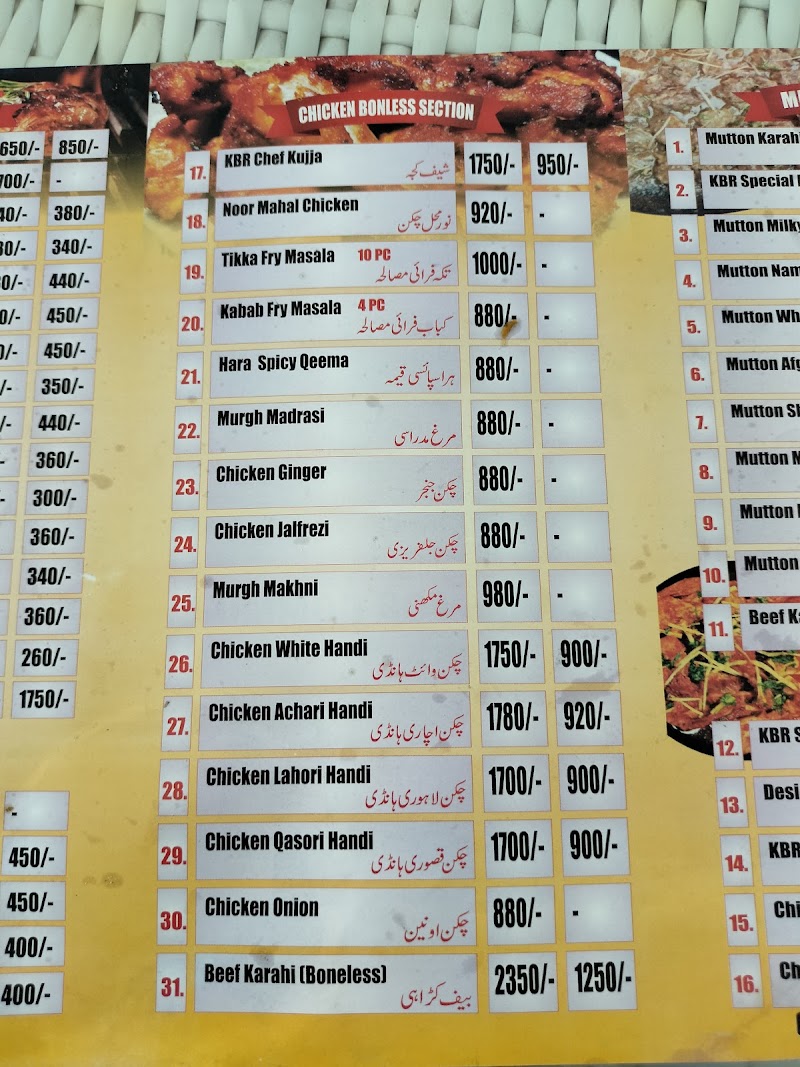 650/- 850/-
700/- -
40/- 380/-
30/- 340/-
0/- 440/-
0/- 450/-
/- 450/-
/- 350/-
/- 440/-
- 360/-
- 300/-
360/-
340/-
360/-
260/-
1750/-
-
450/-
450/-
400/-
400/-
CHICKEN BONLESS SECTION
17. KBR Chef Kujja شیف کجہ 1750/- 950/-
18. Noor Mahal Chicken نور محل چکن 920/- -
19. Tikka Fry Masala 10 PC تکہ فرائی مصالحہ 1000/- -
20. Kabab Fry Masala 4 PC کباب فرائی مصالحہ 880/- -
21. Hara Spicy Qeema ہرا سپائسی قیمہ 880/- -
22. Murgh Madrasi مرغ مدراسی 880/- -
23. Chicken Ginger چکن جنجر 880/- -
24. Chicken Jalfrezi چکن جلفریزی 880/- -
25. Murgh Makhni مرغ مکھنی 980/- -
26. Chicken White Handi چکن وائٹ ہانڈی 1750/- 900/-
27. Chicken Achari Handi چکن اچاری ہانڈی 1780/- 920/-
28. Chicken Lahori Handi چکن لاہوری ہانڈی 1700/- 900/-
29. Chicken Qasori Handi چکن قصوری ہانڈی 1700/- 900/-
30. Chicken Onion چکن اونین 880/- -
31. Beef Karahi (Boneless) بیف کڑاہی 2350/- 1250/-
1. Mutton Karah
2. KBR Special
3. Mutton Milky
4. Mutton Nam
5. Mutton Wh
6. Mutton Afg
7. Mutton Sh
8. Mutton M
9. Mutton
10. Mutton
11. Beef Ka
12. KBR S
13. Desi
14. KBR
15. Chi
16. Ch